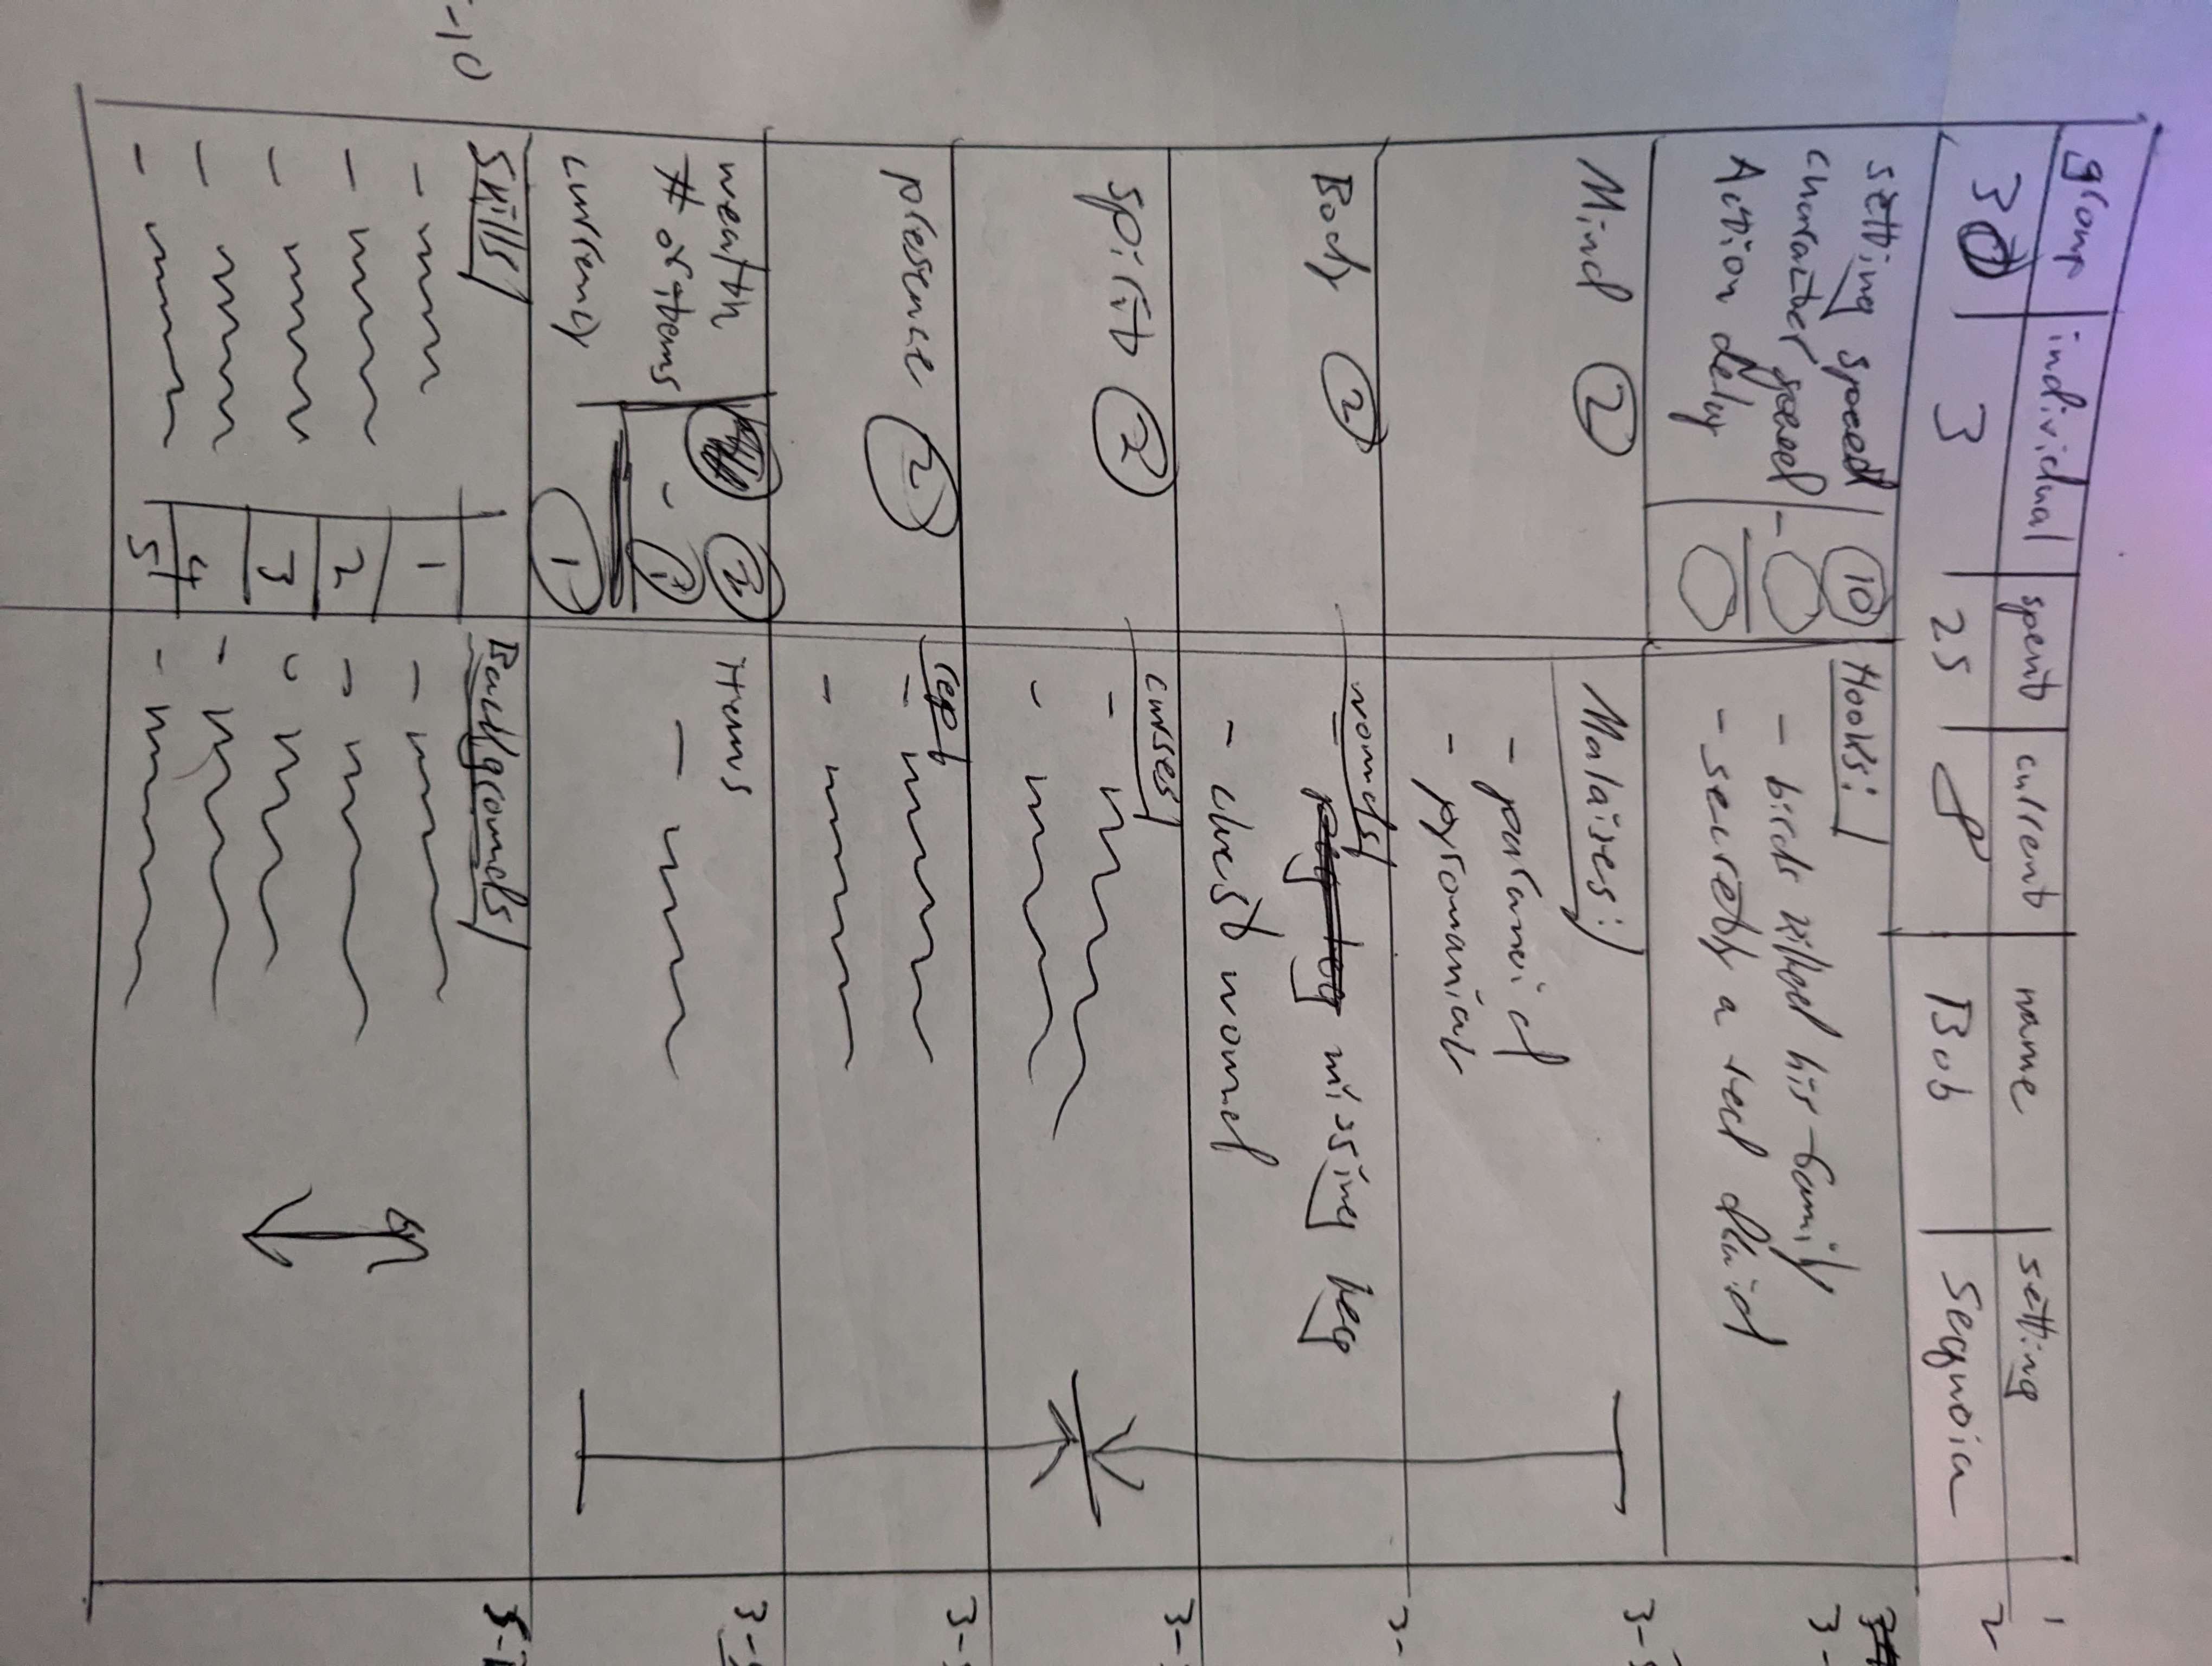 group individual spent current name setting 1
30 3 25 8 Bob Sequoia 2
setting speed 10
character speed -
Action delay
Hooks:
- birds killed his family
- secretly a red druid
3-
Mind 2
Malaises:
- paranoid
- pyromaniac
3-
Body 2
wounds
- peg leg missing leg
- chest wound
3-
spirit 2
curses
-
-
3-
presence 2
rep
-
-
3-
wealth 2
# of items - 1
currency 1
items
-
3-5
Skills
-10
- 1
- 2
- 3
- 4
- 5
Backgrounds
-
-
-
-
-
5-